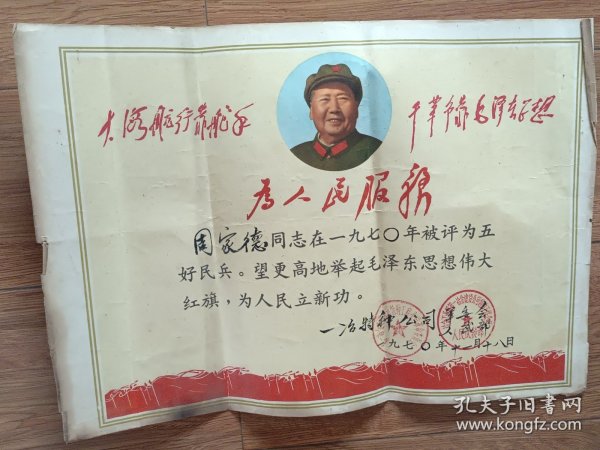 大海航行靠舵手
干革命靠毛泽东思想
为人民服务
周家德同志在一九七〇年被评为五
好民兵。望更高地举起毛泽东思想伟大
红旗，为人民立新功。
一冶特种公司革委会
人武部
一九七〇年十二月十八日
孔夫子旧书网
www.kongfz.com